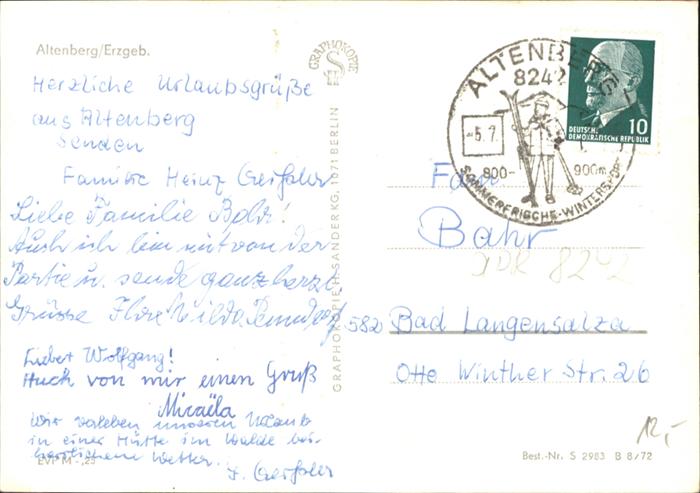 Altenberg/Erzgeb.
Herzliche Urlaubsgrüße
aus Altenberg
senden
Familie Heinz
Liebe Familie
Auch ich bin mit von der
Partie u. sende ganz herzl.
Grüsse
Lieber Wolfgang!
Auch von mir einen Gruß
Micaëla
Wir verleben unseren Urlaub
in einer Hütte im Walde bei
herrlichem Wetter.
EVP M -,25
GRAPHOKOPIE
GRAPHOKOPIE H. SANDER KG, 1071 BERLIN
ALTENBERG
8242
-5.7.
800-
900m
SOMMERFRISCHE-WINTERSPORT
10
DEUTSCHE
DEMOKRATISCHE REPUBLIK
Fam.
Bahr
DDR 8242
582 Bad Langensalza
Otto Winther Str. 26
12,-
Best.-Nr. S 2983 B 8/72